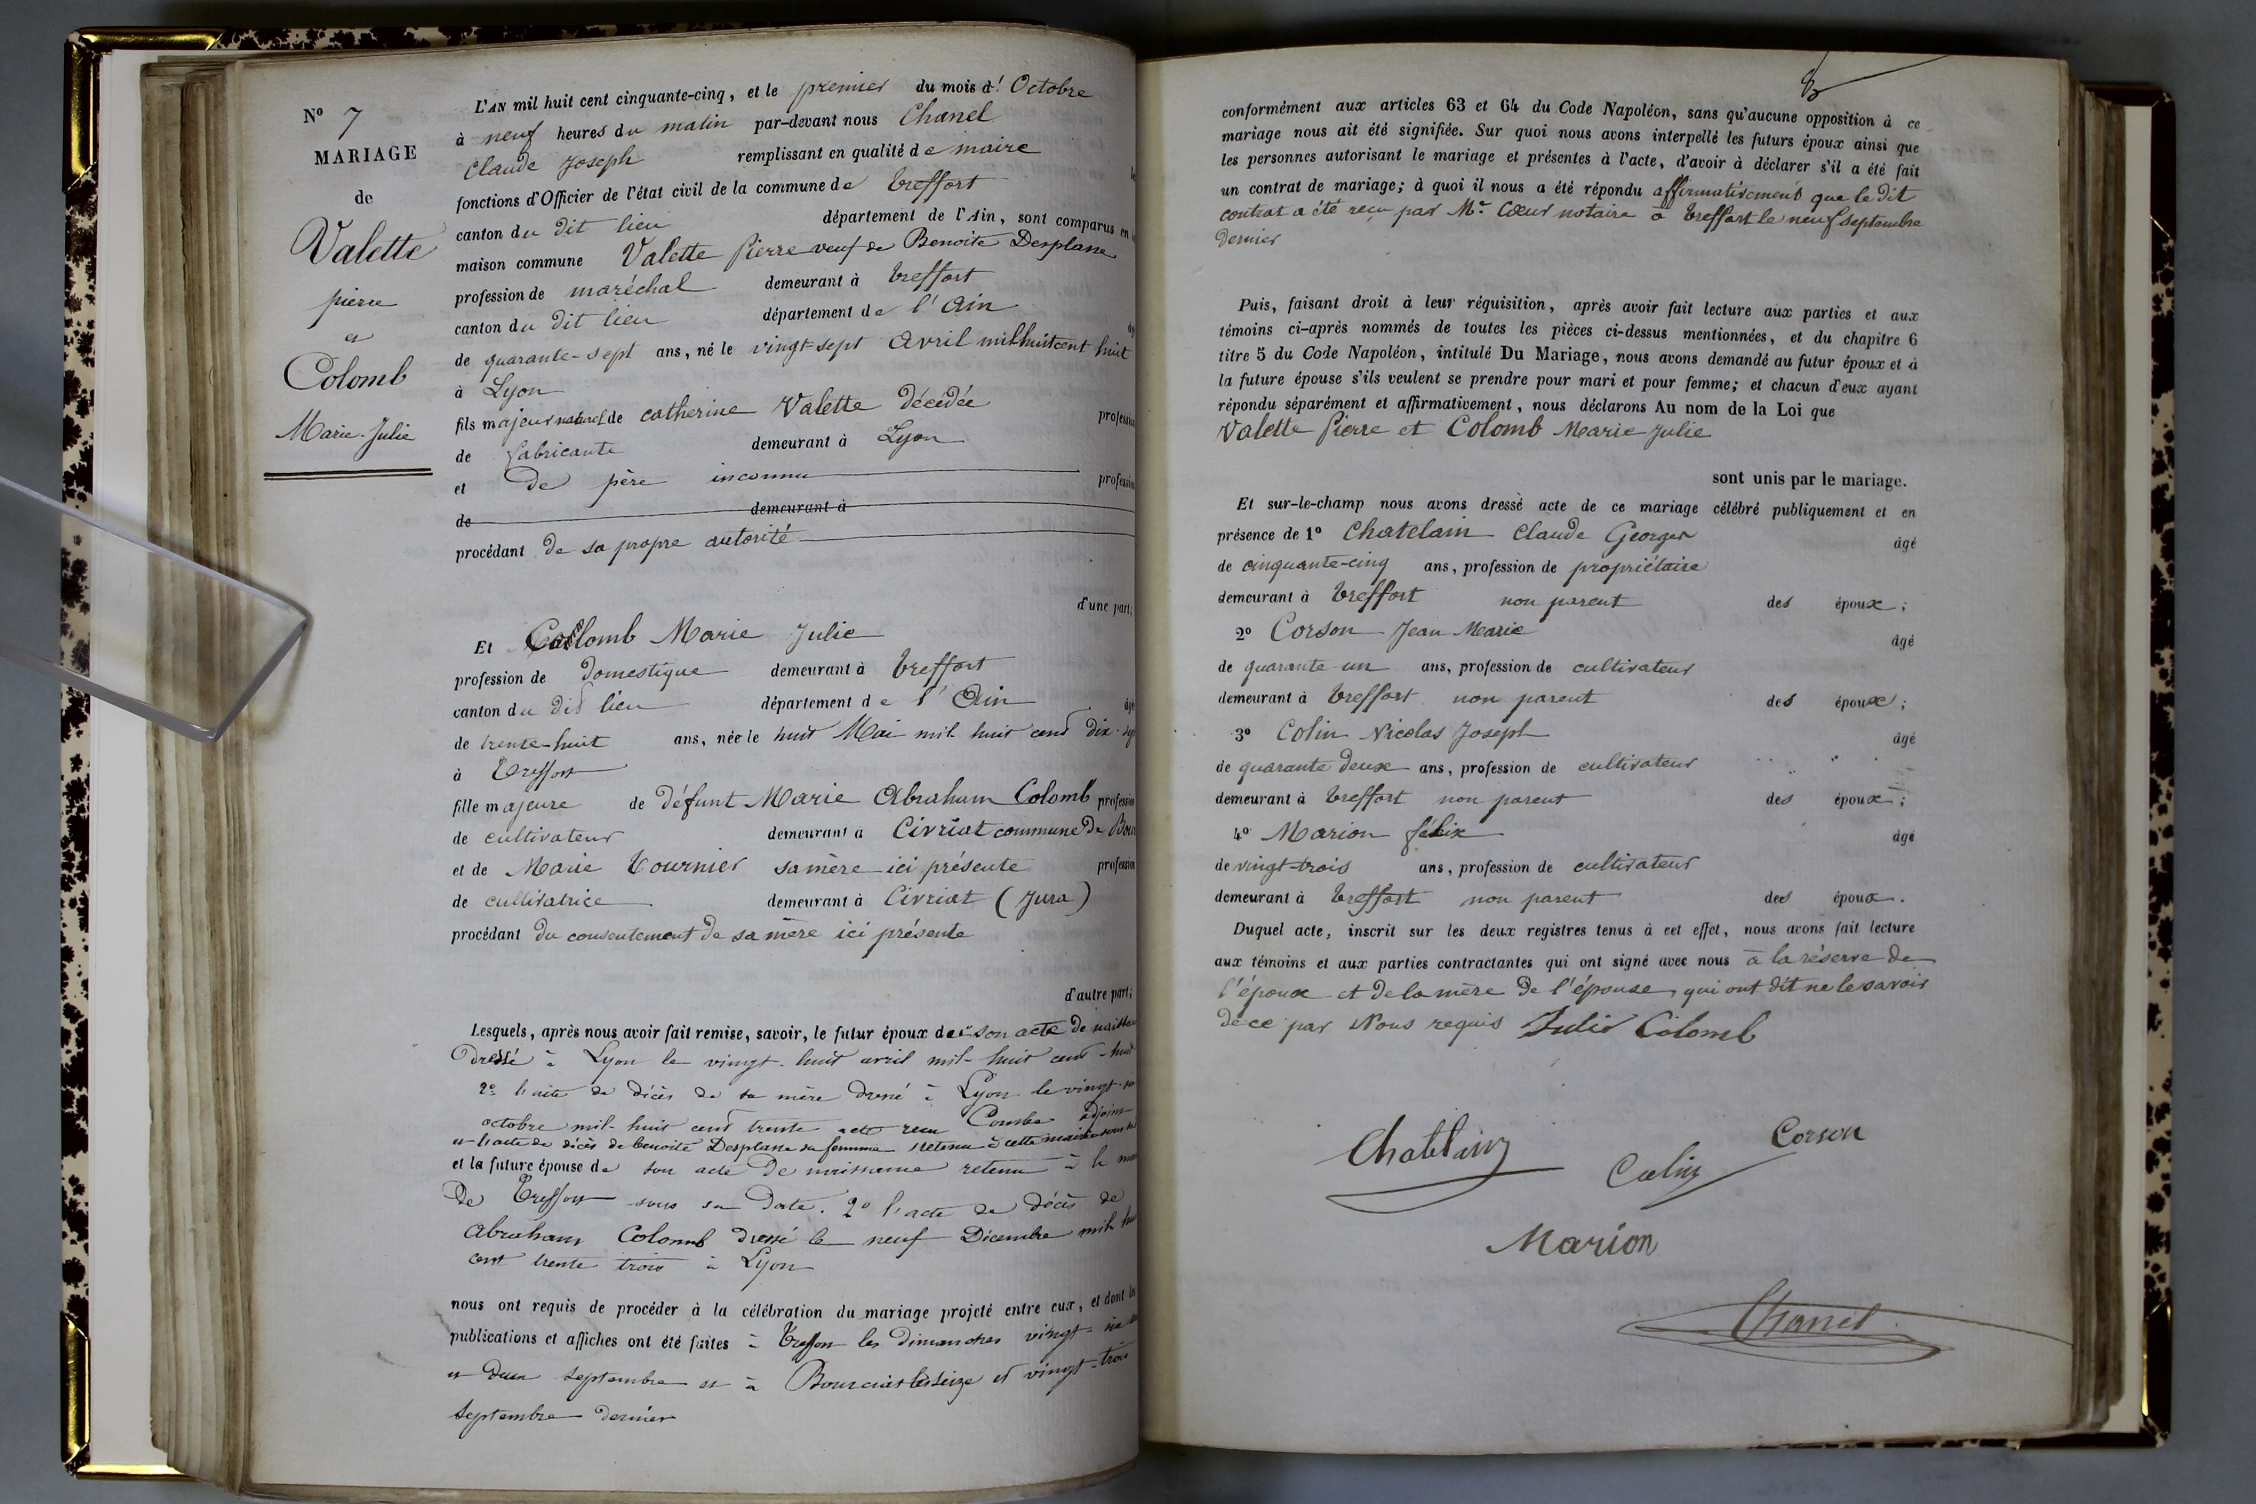 N° 7
MARIAGE
de
Valette
pierre
et
Colomb
Marie-Julie
L'AN mil huit cent cinquante-cinq, et le premier du mois d' Octobre
à neuf heures du matin par-devant nous Chanel
Claude Joseph remplissant en qualité de maire
fonctions d'Officier de l'état civil de la commune de treffort
canton du dit lieu département de l'Ain, sont comparus en
maison commune Valette Pierre veuf de Benoite Desplasse
profession de maréchal demeurant à treffort
canton du dit lieu département de l'Ain
de quarante-sept ans, né le vingt-sept Avril mil huit cent huit
à Lyon
fils majeur naturel de catherine Valette décédée profession
de fabricante demeurant à Lyon
et de père inconnu profession
de demeurant à
procédant de sa propre autorité
d'une part;
Et Collomb Marie Julie
profession de domestique demeurant à treffort
canton du dit lieu département de l'Ain
de trente-huit ans, née le huit Mai mil huit cent dix-sept
à Treffort
fille majeure de défunt Marie Abraham Colomb profession
de cultivateur demeurant à Civriat commune de
et de Marie Tournier sa mère ici présente profession
de cultivatrice demeurant à Civriat (Jura)
procédant du consentement de sa mère ici présente
d'autre part;
Lesquels, après nous avoir fait remise, savoir, le futur époux de 1° son acte de
dressé à Lyon le vingt-huit avril mil-huit cent-huit
2° l'acte de décès de sa mère dressé à Lyon le vingt
octobre mil-huit cent trente acte reçu Combe adjoint
et l'acte de décès de benoite Desplasse sa femme retenu à cette mairie sous
et la future épouse de son acte de naissance retenu à la
de Treffort sous sa date. 2° l'acte de décès de
Abraham Colomb dressé le neuf Décembre mil
cent trente trois à Lyon
nous ont requis de procéder à la célébration du mariage projeté entre eux, et dont les
publications et affiches ont été faites à treffort les dimanches vingt
et deux septembre et à Bourciat les seize et vingt-trois
septembre dernier
conformément aux articles 63 et 64 du Code Napoléon, sans qu'aucune opposition à ce
mariage nous ait été signifiée. Sur quoi nous avons interpellé les futurs époux ainsi que
les personnes autorisant le mariage et présentes à l'acte, d'avoir à déclarer s'il a été fait
un contrat de mariage; à quoi il nous a été répondu affirmativement que le dit
contrat a été reçu par Mr. Cœur notaire à treffort le neuf septembre
dernier
Puis, faisant droit à leur réquisition, après avoir fait lecture aux parties et aux
témoins ci-après nommés de toutes les pièces ci-dessus mentionnées, et du chapitre 6
titre 5 du Code Napoléon, intitulé Du Mariage, nous avons demandé au futur époux et à
la future épouse s'ils veulent se prendre pour mari et pour femme; et chacun d'eux ayant
répondu séparément et affirmativement, nous déclarons Au nom de la Loi que
Valette Pierre et Colomb Marie Julie
sont unis par le mariage.
Et sur-le-champ nous avons dressé acte de ce mariage célébré publiquement et en
présence de 1° Chatelain Claude Georges âgé
de cinquante-cinq ans, profession de propriétaire
demeurant à treffort non parent des époux;
2° Corson Jean Marie âgé
de quarante-un ans, profession de cultivateur
demeurant à treffort non parent des époux;
3° Colin Nicolas Joseph âgé
de quarante deux ans, profession de cultivateur
demeurant à treffort non parent des époux;
4° Marion félix âgé
de vingt-trois ans, profession de cultivateur
demeurant à treffort non parent des époux.
Duquel acte, inscrit sur les deux registres tenus à cet effet, nous avons fait lecture
aux témoins et aux parties contractantes qui ont signé avec nous à la réserve de
l'époux et de la mère de l'épouse, qui ont dit ne le savoir
de ce par Nous requis Julie Colomb
Chatelain
Corson
Colin
Marion
Chanel